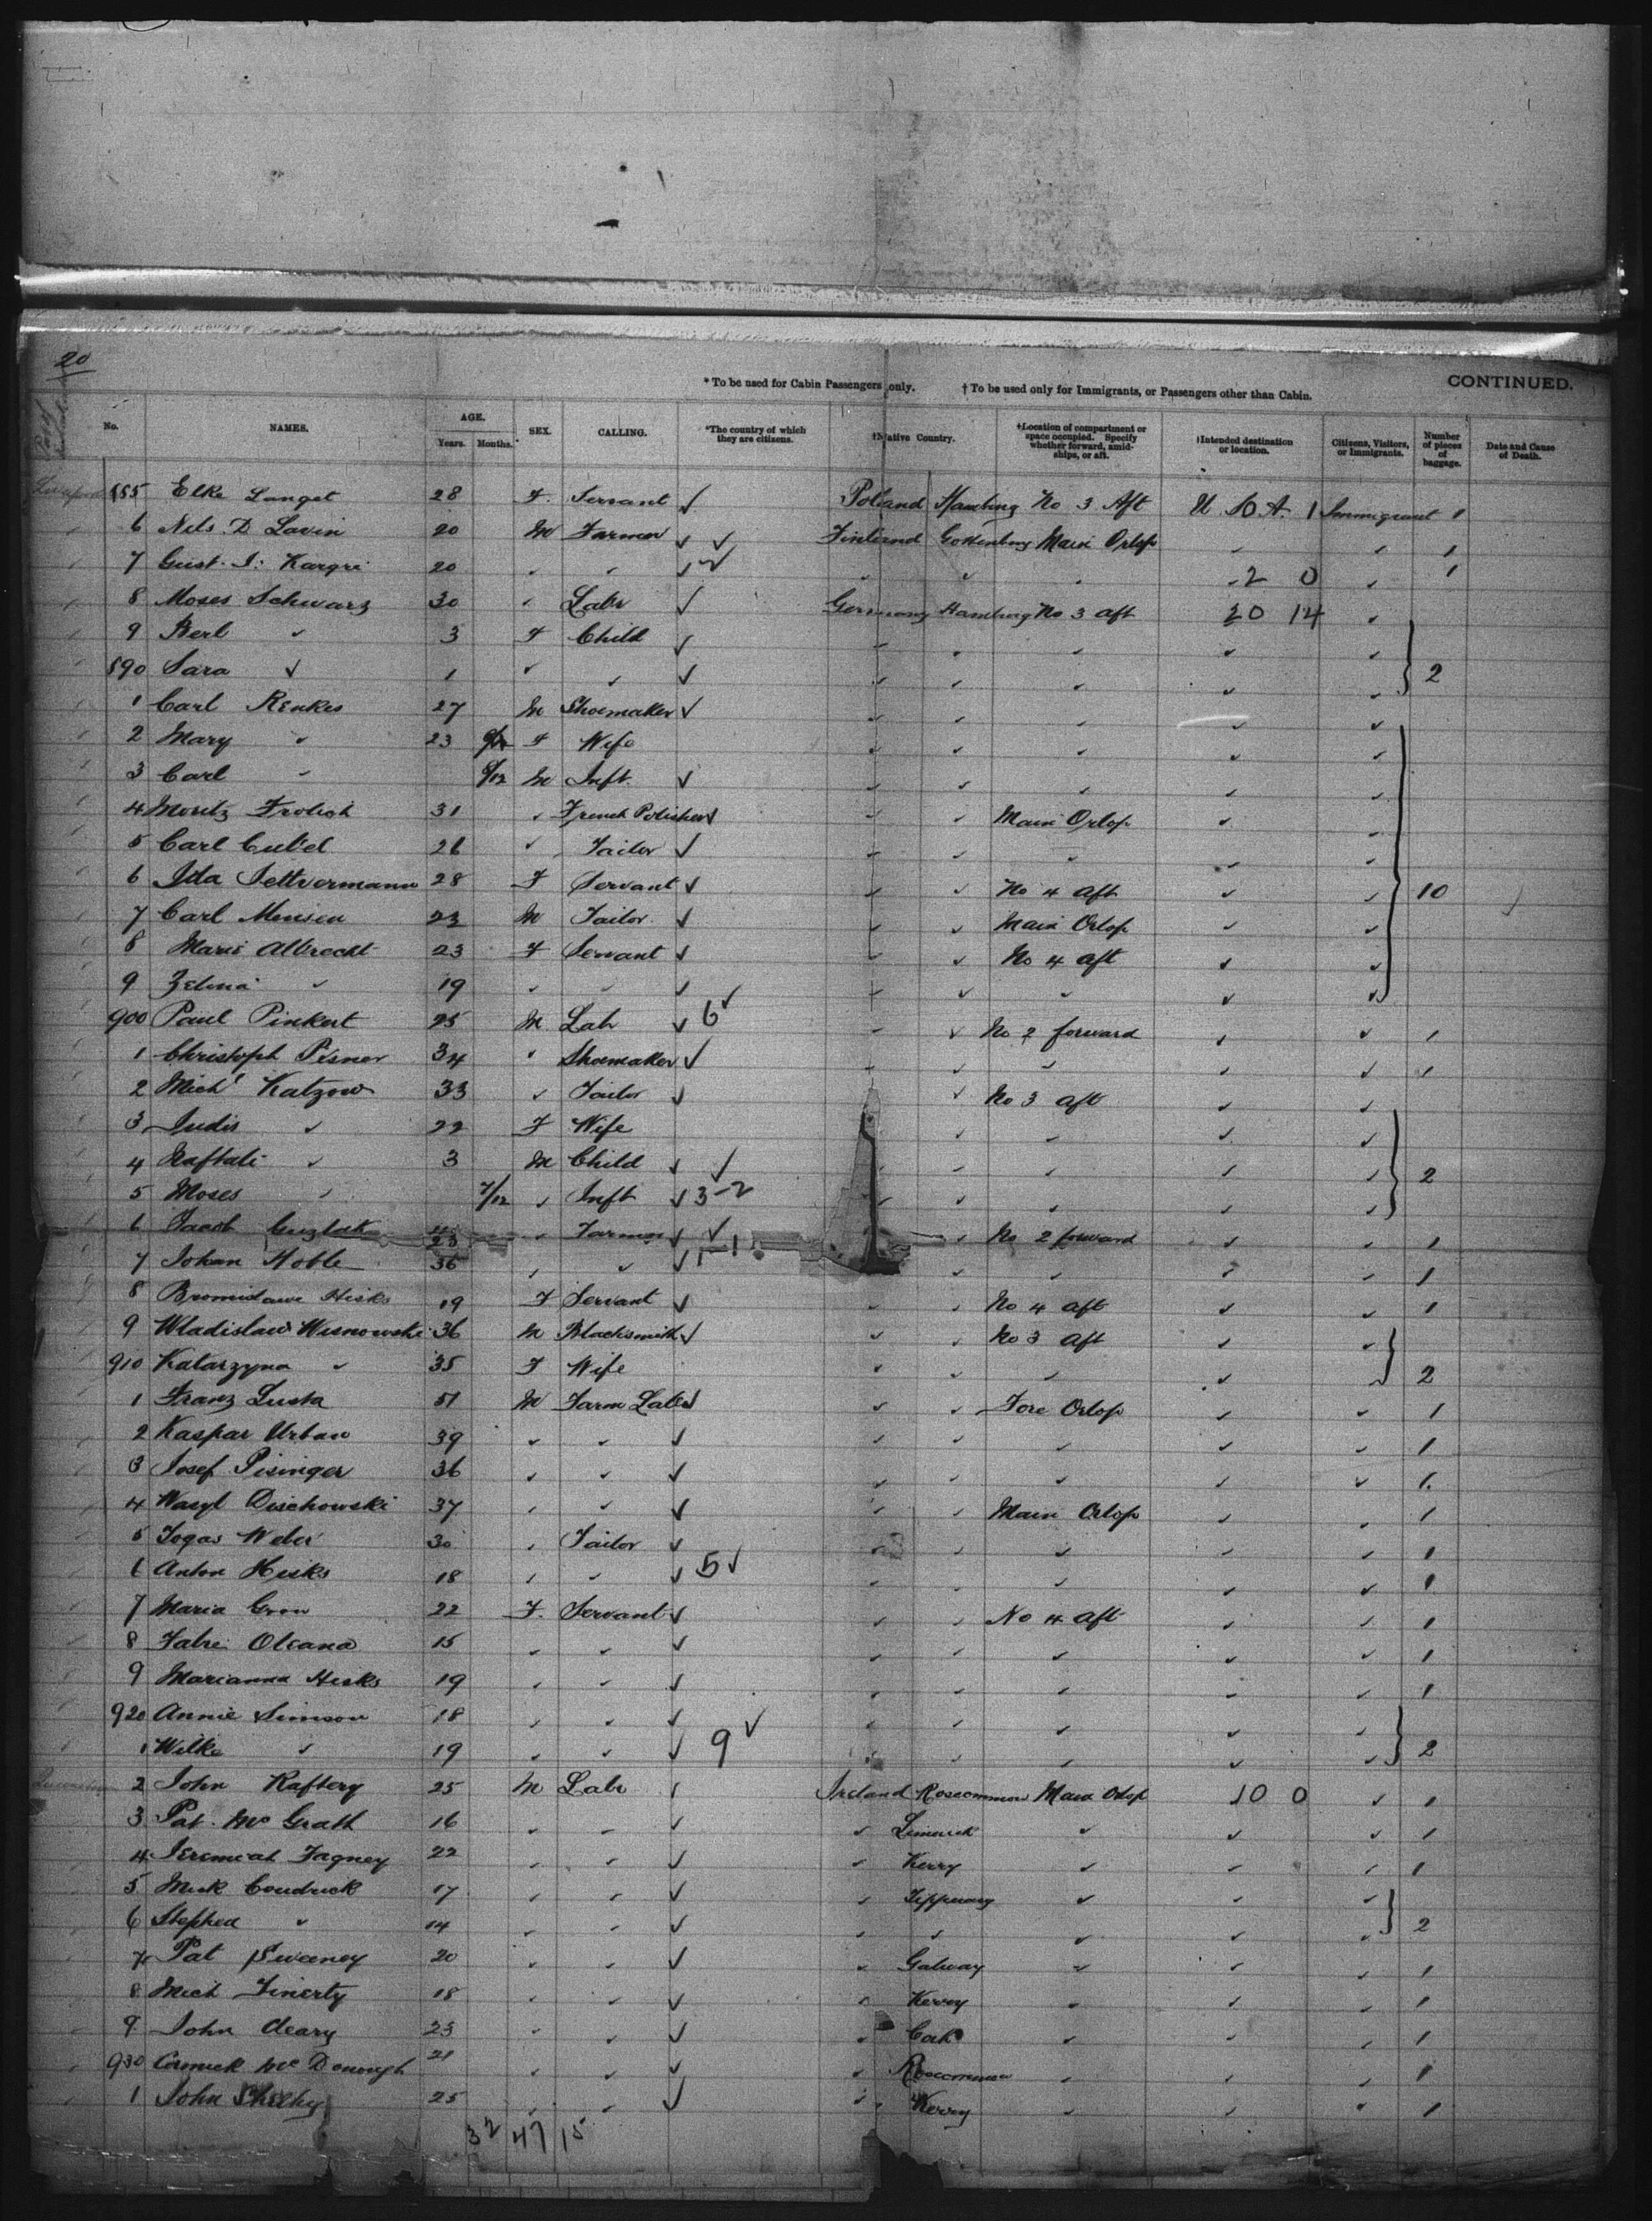 20
* To be used for Cabin Passengers only. † To be used only for Immigrants, or Passengers other than Cabin. CONTINUED.
No. NAMES. AGE. Years. Months. SEX. CALLING. *The country of which they are citizens. †Native Country. †Location of compartment or space occupied. Specify whether forward, amidships, or aft. †Intended destination or location. Citizens, Visitors, or Immigrants. Number of pieces of baggage. Date and Cause of Death.
885 Elke Langet 28 F. Servant ✓ Poland Hamburg No 3 Aft U.S.A. 1 Immigrant 1
6 Nils. D Lavin 20 M Farmer ✓ ✓ Finland Gottenburg Main Orlop 1
7 Gust. I. 20 ✓ 2 0 1
8 Moses Schwarz 30 Labr ✓ Germany Hamburg No 3 aft 20 14
9 3 F Child ✓
890 Sara 1 ✓ 2
1 Carl Renkes 27 M Shoemaker ✓
2 Mary 23 F Wife
3 Carl 8/12 M Inft. ✓
4 Moritz Frolich 31 French Polisher ✓ Main Orlop
5 Carl 26 Tailor ✓
6 Ida Settvermann 28 F Servant ✓ No 4 aft 10
7 Carl Mensen 23 M Tailor ✓ Main Orlop
8 Marie Albrecht 23 F Servant ✓ No 4 aft
9 Zelma 19 ✓
900 Paul Pinkert 25 M Labr ✓ 6 ✓ No 2 forward 1
1 Christoph Pisner 34 Shoemaker ✓ 1
2 Michl Katzow 33 Tailor ✓ No 3 aft
3 Judis 22 F Wife
4 Naftali 3 M Child ✓ ✓ 2
5 Moses 7/12 Inft ✓ 3-2
6 Jacob 23 Farmer ✓ ✓ No 2 forward 1
7 Johan Noble 36 ✓ 1-1 1
8 Hisks 19 F Servant ✓ No 4 aft 1
9 Wladislaw Wisnowski 36 M Blacksmith ✓ No 3 aft
910 Katarzyna 35 F Wife 2
1 Franz Lusta 51 M Farm Labr ✓ Fore Orlop 1
2 Kaspar Urban 39 ✓ 1
3 Josef Pisinger 36 ✓ 1.
4 Wasyl Dischowski 37 ✓ Main Orlop 1
5 Weber 30 Tailor ✓ 1
6 Anton Hisks 18 ✓ 5 ✓ 1
7 Maria 22 F. Servant ✓ No 4 aft 1
8 Oleana 15 ✓ 1
9 Marianna Hisks 19 ✓ 1
920 Annie Simson 18 ✓
1 Wilke 19 ✓ 9 ✓ 2
2 John Raftery 25 M Labr Ireland Roscommon Main Orlop 10 0 1
3 Pat. Mc Grath 16 ✓ Limerick 1
4 Jeremiah Fagney 22 ✓ Kerry 1
5 Mick Condrick 17 ✓ Tipperary
6 Stephen 14 ✓ 2
7 Pat Sweeney 20 ✓ Galway 1
8 Mich Finerty 18 ✓ Kerry 1
9 John Cleary 23 ✓ Cork 1
930 Cormick Mc Donough 21 ✓ Roscommon 1
1 John Sheehy 25 ✓ Kerry 1
32 47 15